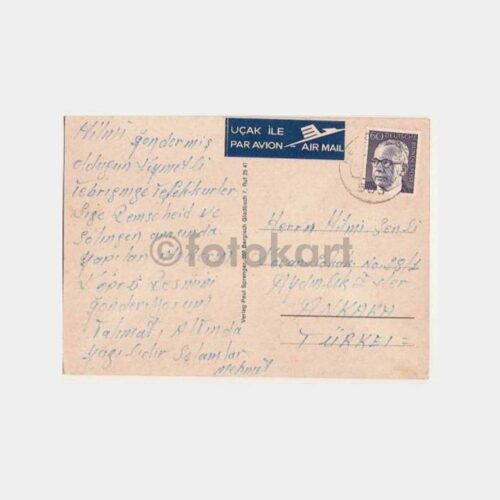 Hilmi
Göndermiş
olduğun kıymetli
tebriğinize Teşekkürler
Size Remscheid ve
Solingen arasında
yapılan
Köprü Resmini
gönderiyorum
Talimatı Altında
yazılıdır Selamlar
Mehmet
UÇAK İLE
PAR AVION AIR MAIL
60 DEUTSCHE BUNDESPOST
Verlag Paul Sprenger, 507 Bergisch Gladbach 7, Ruf 25 41
Herrn Hilmi Şenli
Sokak No. 28/2
Aydınlık Evler
ANKARA
TÜRKEI =
©fotokart